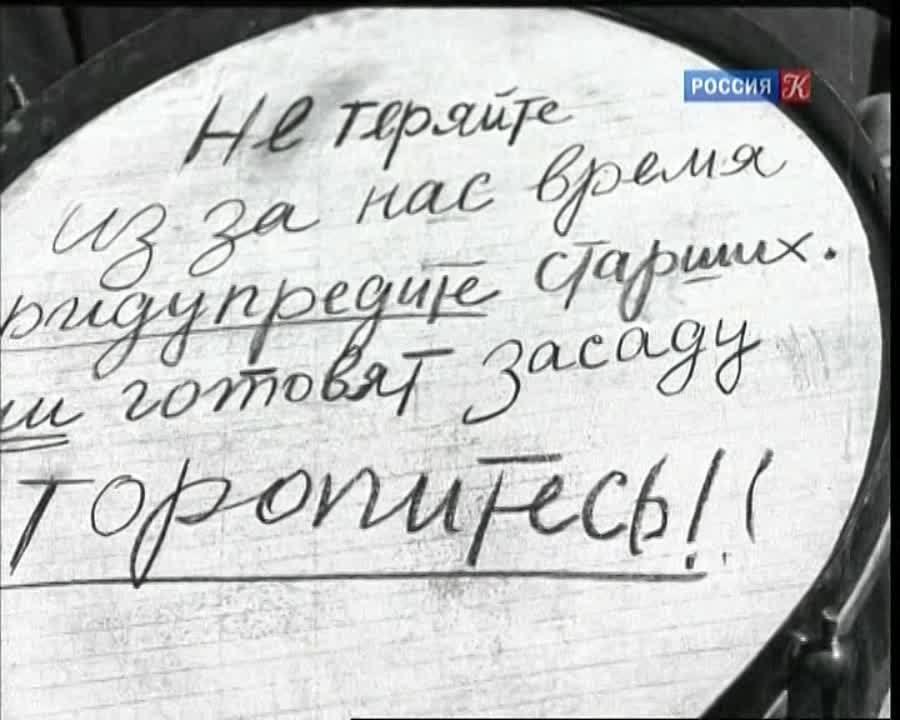 РОССИЯ К
Не теряйте
из за нас время
ридупредите старших.
готовят засаду
торопитесь!!